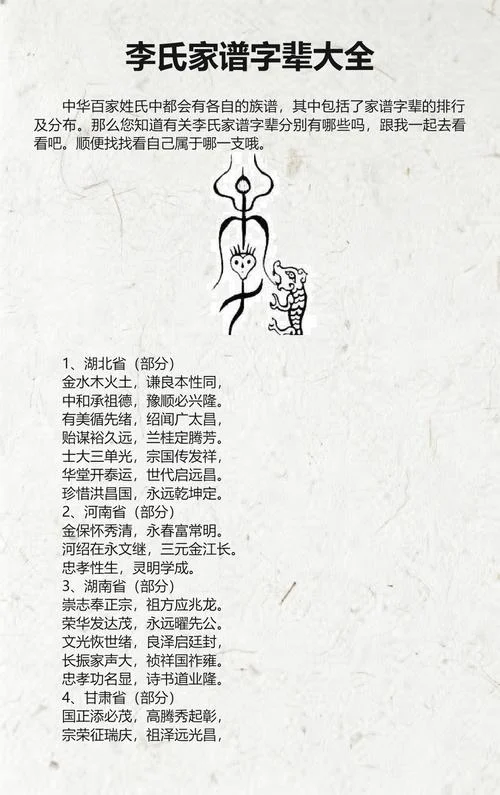 李氏家谱字辈大全
中华百家姓氏中都会有各自的族谱，其中包括了家谱字辈的排行
及分布。那么您知道有关李氏家谱字辈分别有哪些吗，跟我一起去看
看吧。顺便找找看自己属于哪一支哦。
1、湖北省（部分）
金水木火土，谦良本性同，
中和承祖德，豫顺必兴隆。
有美循先绪，绍闻广太昌，
贻谋裕久远，兰桂定腾芳。
士大三单光，宗国传发祥，
华堂开泰运，世代启远昌。
珍惜洪昌国，永远乾坤定。
2、河南省（部分）
金保怀秀清，永春富常明。
河绍在永文继，三元金江长。
忠孝性生，灵明学成。
3、湖南省（部分）
崇志奉正宗，祖方应兆龙。
荣华发达茂，永远曜先公。
文光恢世绪，良泽启廷封，
长振家声大，祯祥国祚雍。
忠孝功名显，诗书道业隆。
4、甘肃省（部分）
国正添必茂，高腾秀起彰，
宗荣征瑞庆，祖泽远光昌，